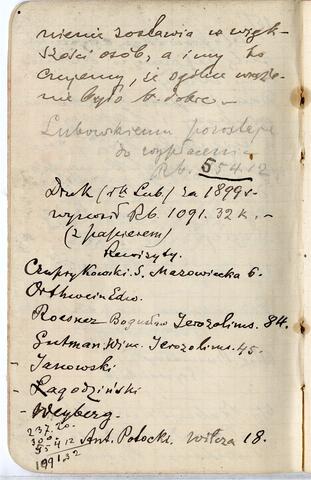 nienie zostawia w więk-
szości osób, a i my to
czujemy, że ogólne wraże-
nie było b. dobre —
Lubowskiemu pozostaje
do wypłacenia
Rb. 554.12
Druk (Th. Lub.) za 1899 r.
wynosił Rb. 1091.32 k. —
(z papierem)
Rewizyty.
Czuprykowski S. Mazowiecka 6.
Orthwein Edw.
Roesner Bogusław Jerozolims. 84.
Gutman Winc. Jerozolims. 45.
- Janowski
- Łagodziński
- Weyberg.
237.20.
300.
554.12 Ant. Potocki. Wilcza 18.
1091.32